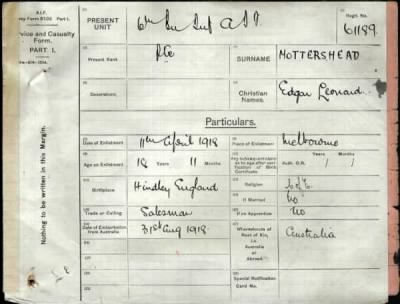 A.I.F.
Army Form B103 Part I.
Service and Casualty
Form.
PART I.
Nothing to be written in this Margin.
PRESENT
UNIT
Regtl. No.
61189
Present Rank
Pte
SURNAME
MOTTERSHEAD
Decorations
Christian
Names.
Edgar Leonard
Particulars.
Date of Enlistment
11th April 1918
Place of Enlistment
Melbourne
Age on Enlistment
18 YEARS 11 MONTHS
Birthplace
Hindley England
Religion
C of E
Trade or Calling
Salesman
If Married
No
If an Apprentice
No
Date of Embarkation
from Australia
31st Aug 1918
Whereabouts of
Next of Kin, i.e.
Australia or
Abroad.
Australia
Special Notification
Card No.